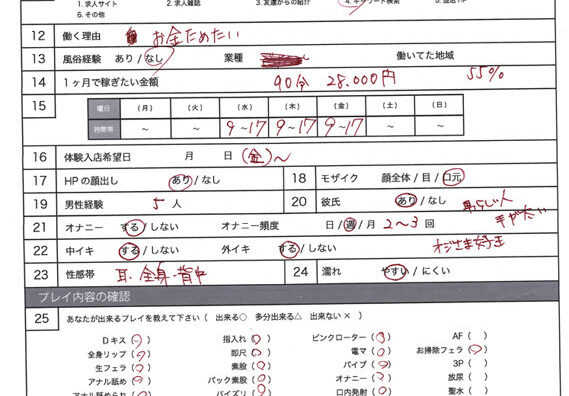 1. 求人サイト 2. 求人雑誌 3. 友達からの紹介 4. キーワード検索
6. その他
12 働く理由 お金ためたい
13 風俗経験 あり / なし 業種 働いてた地域
14 1ヶ月で稼ぎたい金額 90分 28.000円 55%
15 曜日 (月) (火) (水) (木) (金) (土) (日)
時間帯 ~ ~ 9~17 9~17 9~17 ~ ~
16 体験入店希望日 月 日 (金)~
17 HPの顔出し あり / なし 18 モザイク 顔全体 / 目 / 口元
19 男性経験 5 人 20 彼氏 あり / なし 男らしい人
21 オナニー する / しない オナニー頻度 日 / 週 / 月 2~3 回
22 中イキ する / しない 外イキ する / しない オジさま好き
23 性感帯 耳・全身・背中 24 濡れ やすい / にくい
プレイ内容の確認
25 あなたが出来るプレイを教えて下さい ( 出来る○ 多分出来る△ 出来ない× )
Dキス (○) 指入れ (○) ピンクローター (○) AF ( )
全身リップ (○) 即尺 (○) 電マ (○) お掃除フェラ (○)
生フェラ (○) 素股 (○) バイブ (○) 3P ( )
アナル舐め (○) バック素股 (○) オナニー (○) 放尿 ( )
アナル舐められ (○) パイズリ (○) 口内発射 (○) 聖水 ( )